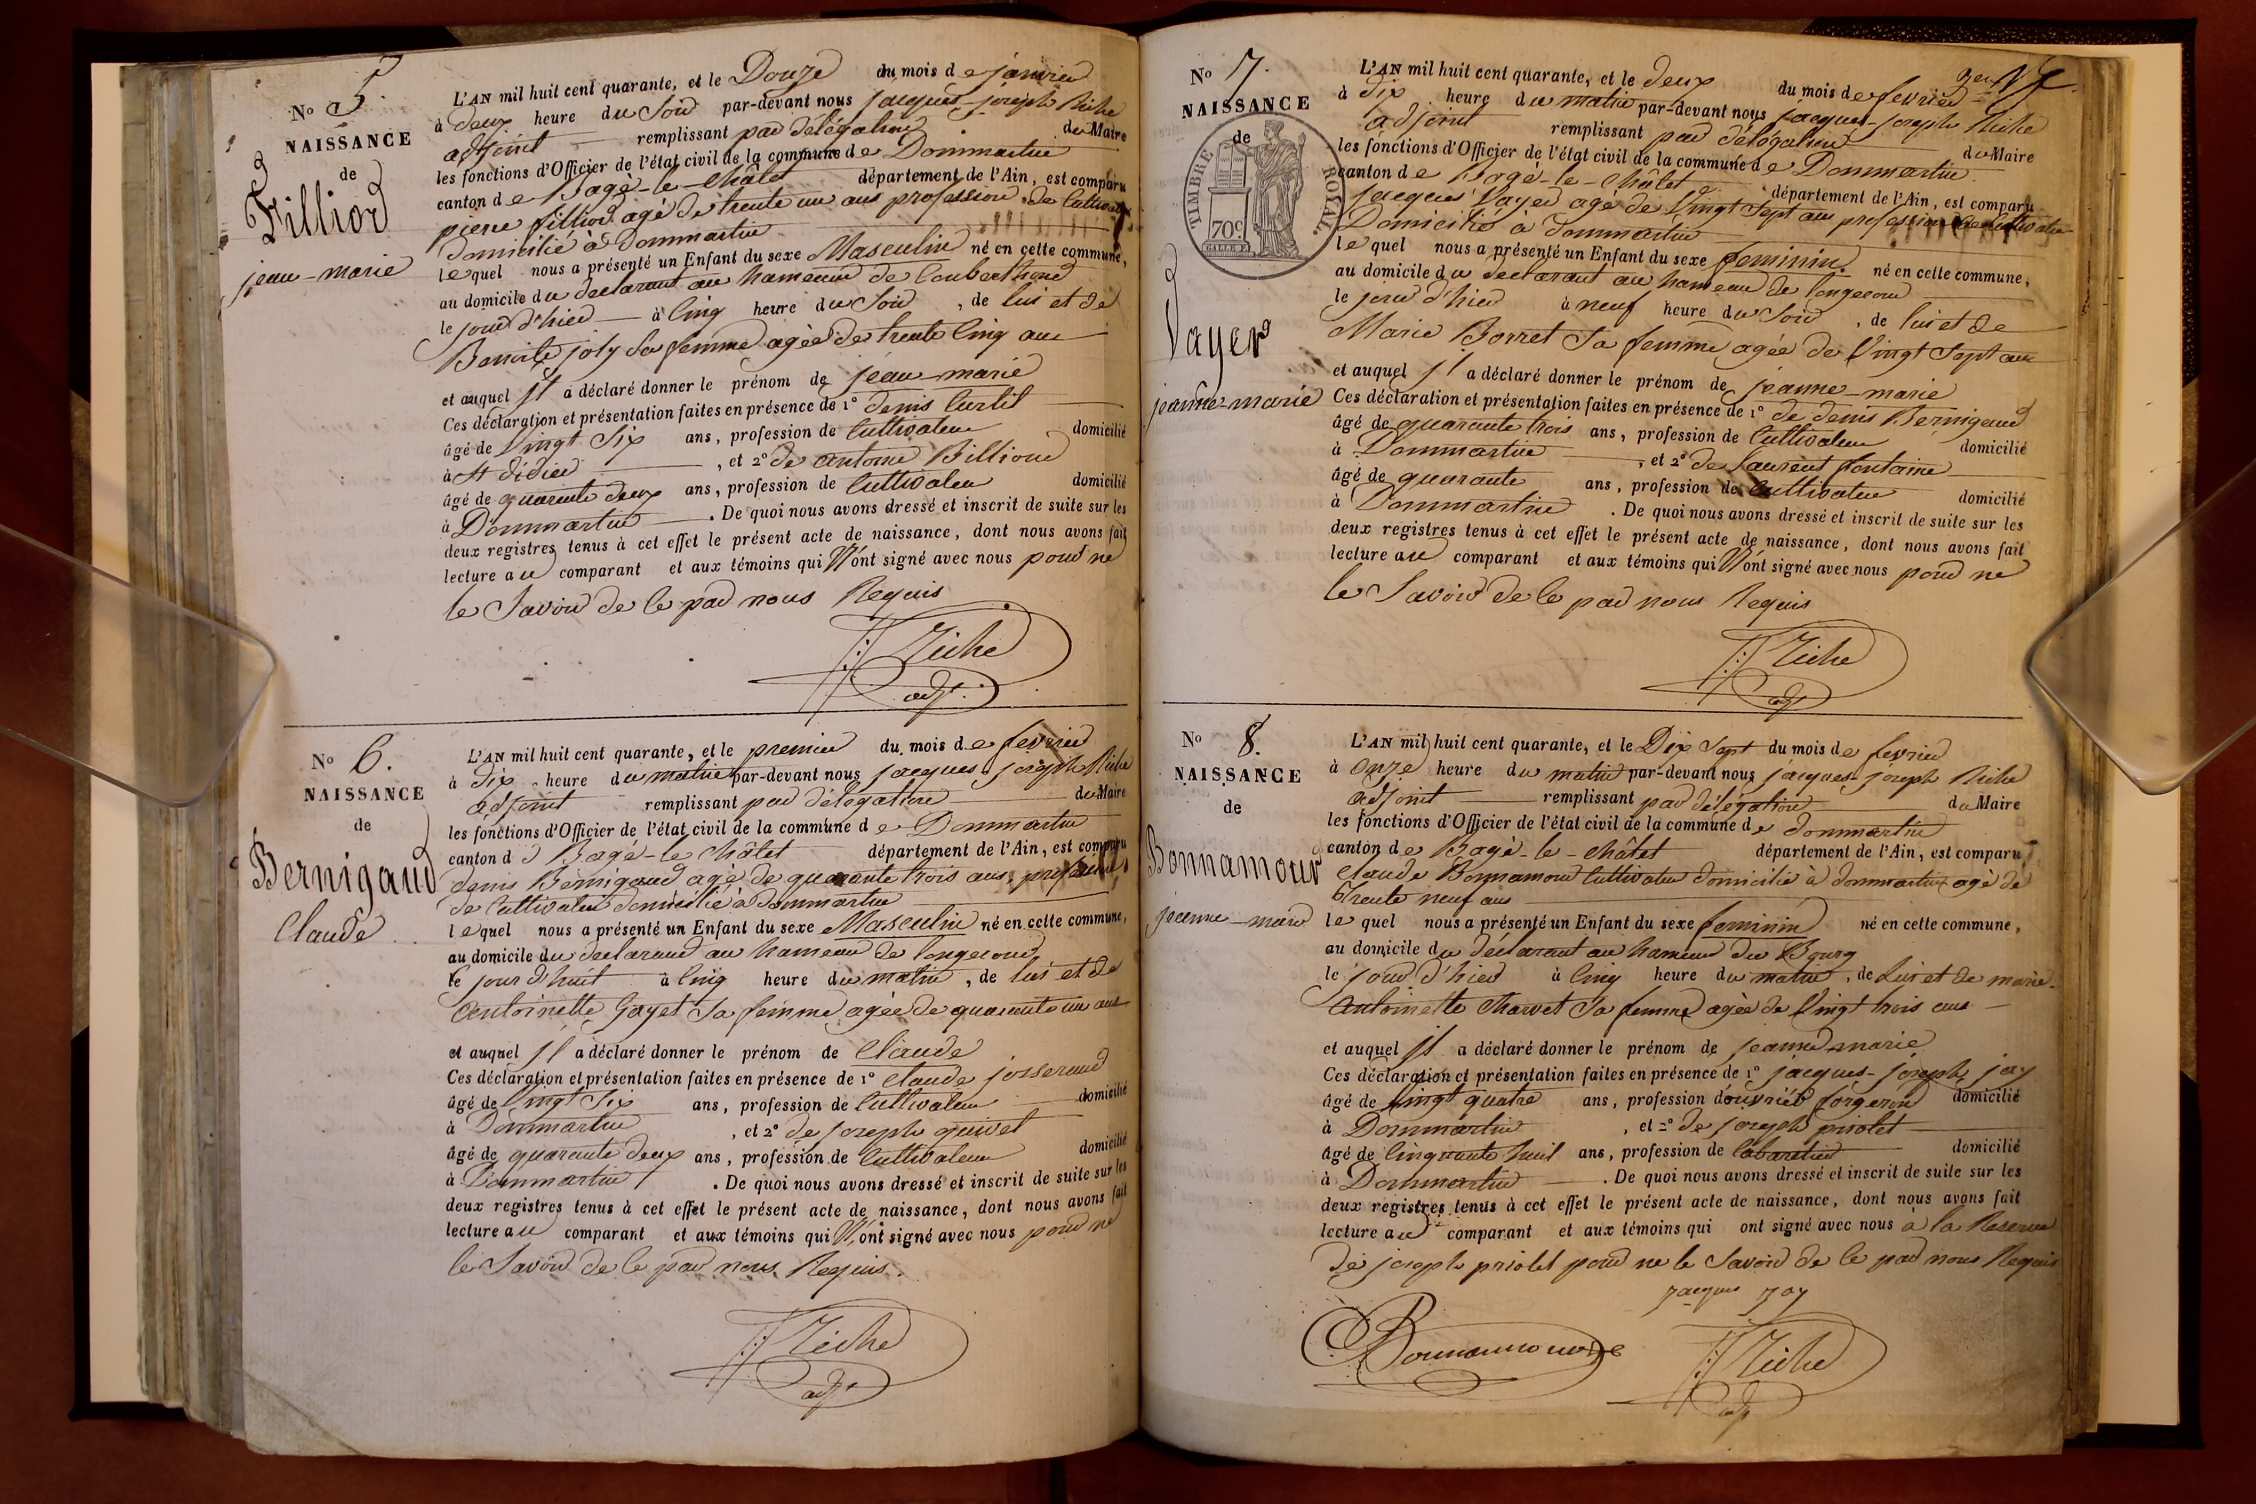 No 5.
NAISSANCE
de
Fillioud
jean-marie
L'AN mil huit cent quarante, et le Douze du mois de janvier
à deux heure du Soir par-devant nous jacques-joseph Riche
adjoint remplissant par délégation du Maire
les fonctions d'Officier de l'état civil de la commune de Dommartin
canton de Bagé-le-Châtel département de l'Ain, est comparu
pierre fillioud agé de trente un ans profession de Cultivateur
Domicilié à Dommartin
lequel nous a présenté un Enfant du sexe Masculin né en cette commune,
au domicile du declarant au hameau de
le jour d'hier à Cinq heure du Soir, de lui et de
Benoite joly Sa femme agée de trente Cinq ans
et auquel jl a déclaré donner le prénom de jean-marie
Ces déclaration et présentation faites en présence de 1º denis Curtil
âgé de Vingt Six ans, profession de Cultivateur domicilié
à St didier, et 2º de antoine Billioud
âgé de quarante deux ans, profession de Cultivateur domicilié
à Dommartin. De quoi nous avons dressé et inscrit de suite sur les
deux registres tenus à cet effet le présent acte de naissance, dont nous avons fait
lecture au comparant et aux témoins qui N'ont signé avec nous pour ne
le Savoir de ce par nous Requis
Riche
adjt.
No 6.
NAISSANCE
de
Bernigaud
Claude
L'AN mil huit cent quarante, et le premier du mois de fevrier
à Dix heure du matin par-devant nous jacques-joseph Riche
adjoint remplissant par délégation du Maire
les fonctions d'Officier de l'état civil de la commune de Dommartin
canton d Bagé-le-Châtel département de l'Ain, est comparu
denis Bernigaud agé de quarante trois ans profession
de Cultivateur domicilié à dommartin
lequel nous a présenté un Enfant du sexe Masculin né en cette commune,
au domicile du declarant au hameau de longecour
le jour d'huit à Cinq heure du matin, de lui et de
antoinette Gayet Sa femme agée de quarante un ans
et auquel jl a déclaré donner le prénom de Claude
Ces déclaration et présentation faites en présence de 1º Claude josserand
âgé de Vingt Six ans, profession de Cultivateur domicilié
à Dommartin, et 2º de joseph
âgé de quarante deux ans, profession de Cultivateur domicilié
à Dommartin. De quoi nous avons dressé et inscrit de suite sur les
deux registres tenus à cet effet le présent acte de naissance, dont nous avons fait
lecture au comparant et aux témoins qui N'ont signé avec nous pour ne
le Savoir de ce par nous Requis.
Riche
adjt
No 7.
NAISSANCE
de
TIMBRE ROYAL.
70c
Vayer
jeanne-marie
L'AN mil huit cent quarante, et le deux du mois de fevrier
à Dix heure du matin par-devant nous jacques-joseph Riche
adjoint remplissant par délégation du Maire
les fonctions d'Officier de l'état civil de la commune de Dommartin
canton de Bagé-le-Châtel département de l'Ain, est comparu
jacques Vayer agé de Vingt Sept ans profession de Cultivateur
Domicilié à Dommartin
lequel nous a présenté un Enfant du sexe feminin né en cette commune,
au domicile du declarant au hameau de longecour
le jour d'hier à neuf heure du Soir, de lui et de
Marie Borret Sa femme agée de Vingt Sept ans
et auquel jl a déclaré donner le prénom de jeanne-marie
Ces déclaration et présentation faites en présence de 1º de denis Bernigaud
âgé de quarante trois ans, profession de Cultivateur domicilié
à Dommartin, et 2º de Laurent fontaine
âgé de quarante ans, profession de Cultivateur domicilié
à Dommartin. De quoi nous avons dressé et inscrit de suite sur les
deux registres tenus à cet effet le présent acte de naissance, dont nous avons fait
lecture au comparant et aux témoins qui N'ont signé avec nous pour ne
le Savoir de ce par nous Requis
Riche
adjt
No 8.
NAISSANCE
de
Bonnamour
jeanne-marie
L'AN mil huit cent quarante, et le Dix Sept du mois de fevrier
à Onze heure du matin par-devant nous jacques-joseph Riche
adjoint remplissant par délégation du Maire
les fonctions d'Officier de l'état civil de la commune de dommartin
canton de Bagé-le-Châtel département de l'Ain, est comparu
Claude Bonnamour Cultivateur domicilié à dommartin agé de
trente neuf ans
lequel nous a présenté un Enfant du sexe feminin né en cette commune,
au domicile du déclarant au hameau du Bourg
le jour d'hier à Cinq heure du matin, de Lui et de marie
antoinette Charvet Sa femme agée de Vingt trois ans
et auquel jl a déclaré donner le prénom de jeanne-marie
Ces déclaration et présentation faites en présence de 1º jacques-joseph jay
âgé de Vingt quatre ans, profession d'ouvrier forgeron domicilié
à Dommartin, et 2º de joseph priolet
âgé de Cinquante huit ans, profession de Cabaretier domicilié
à Dommartin. De quoi nous avons dressé et inscrit de suite sur les
deux registres tenus à cet effet le présent acte de naissance, dont nous avons fait
lecture au comparant et aux témoins qui ont signé avec nous à la Reserve
de joseph priolet pour ne le Savoir de ce par nous Requis
jacques joy
Bonnamour
Riche
adjt